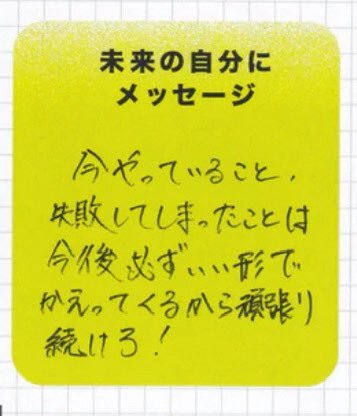 未来の自分に
メッセージ
今やっていること、
失敗してしまったことは
今後必ずいい形で
かえってくるから頑張り
続けろ!